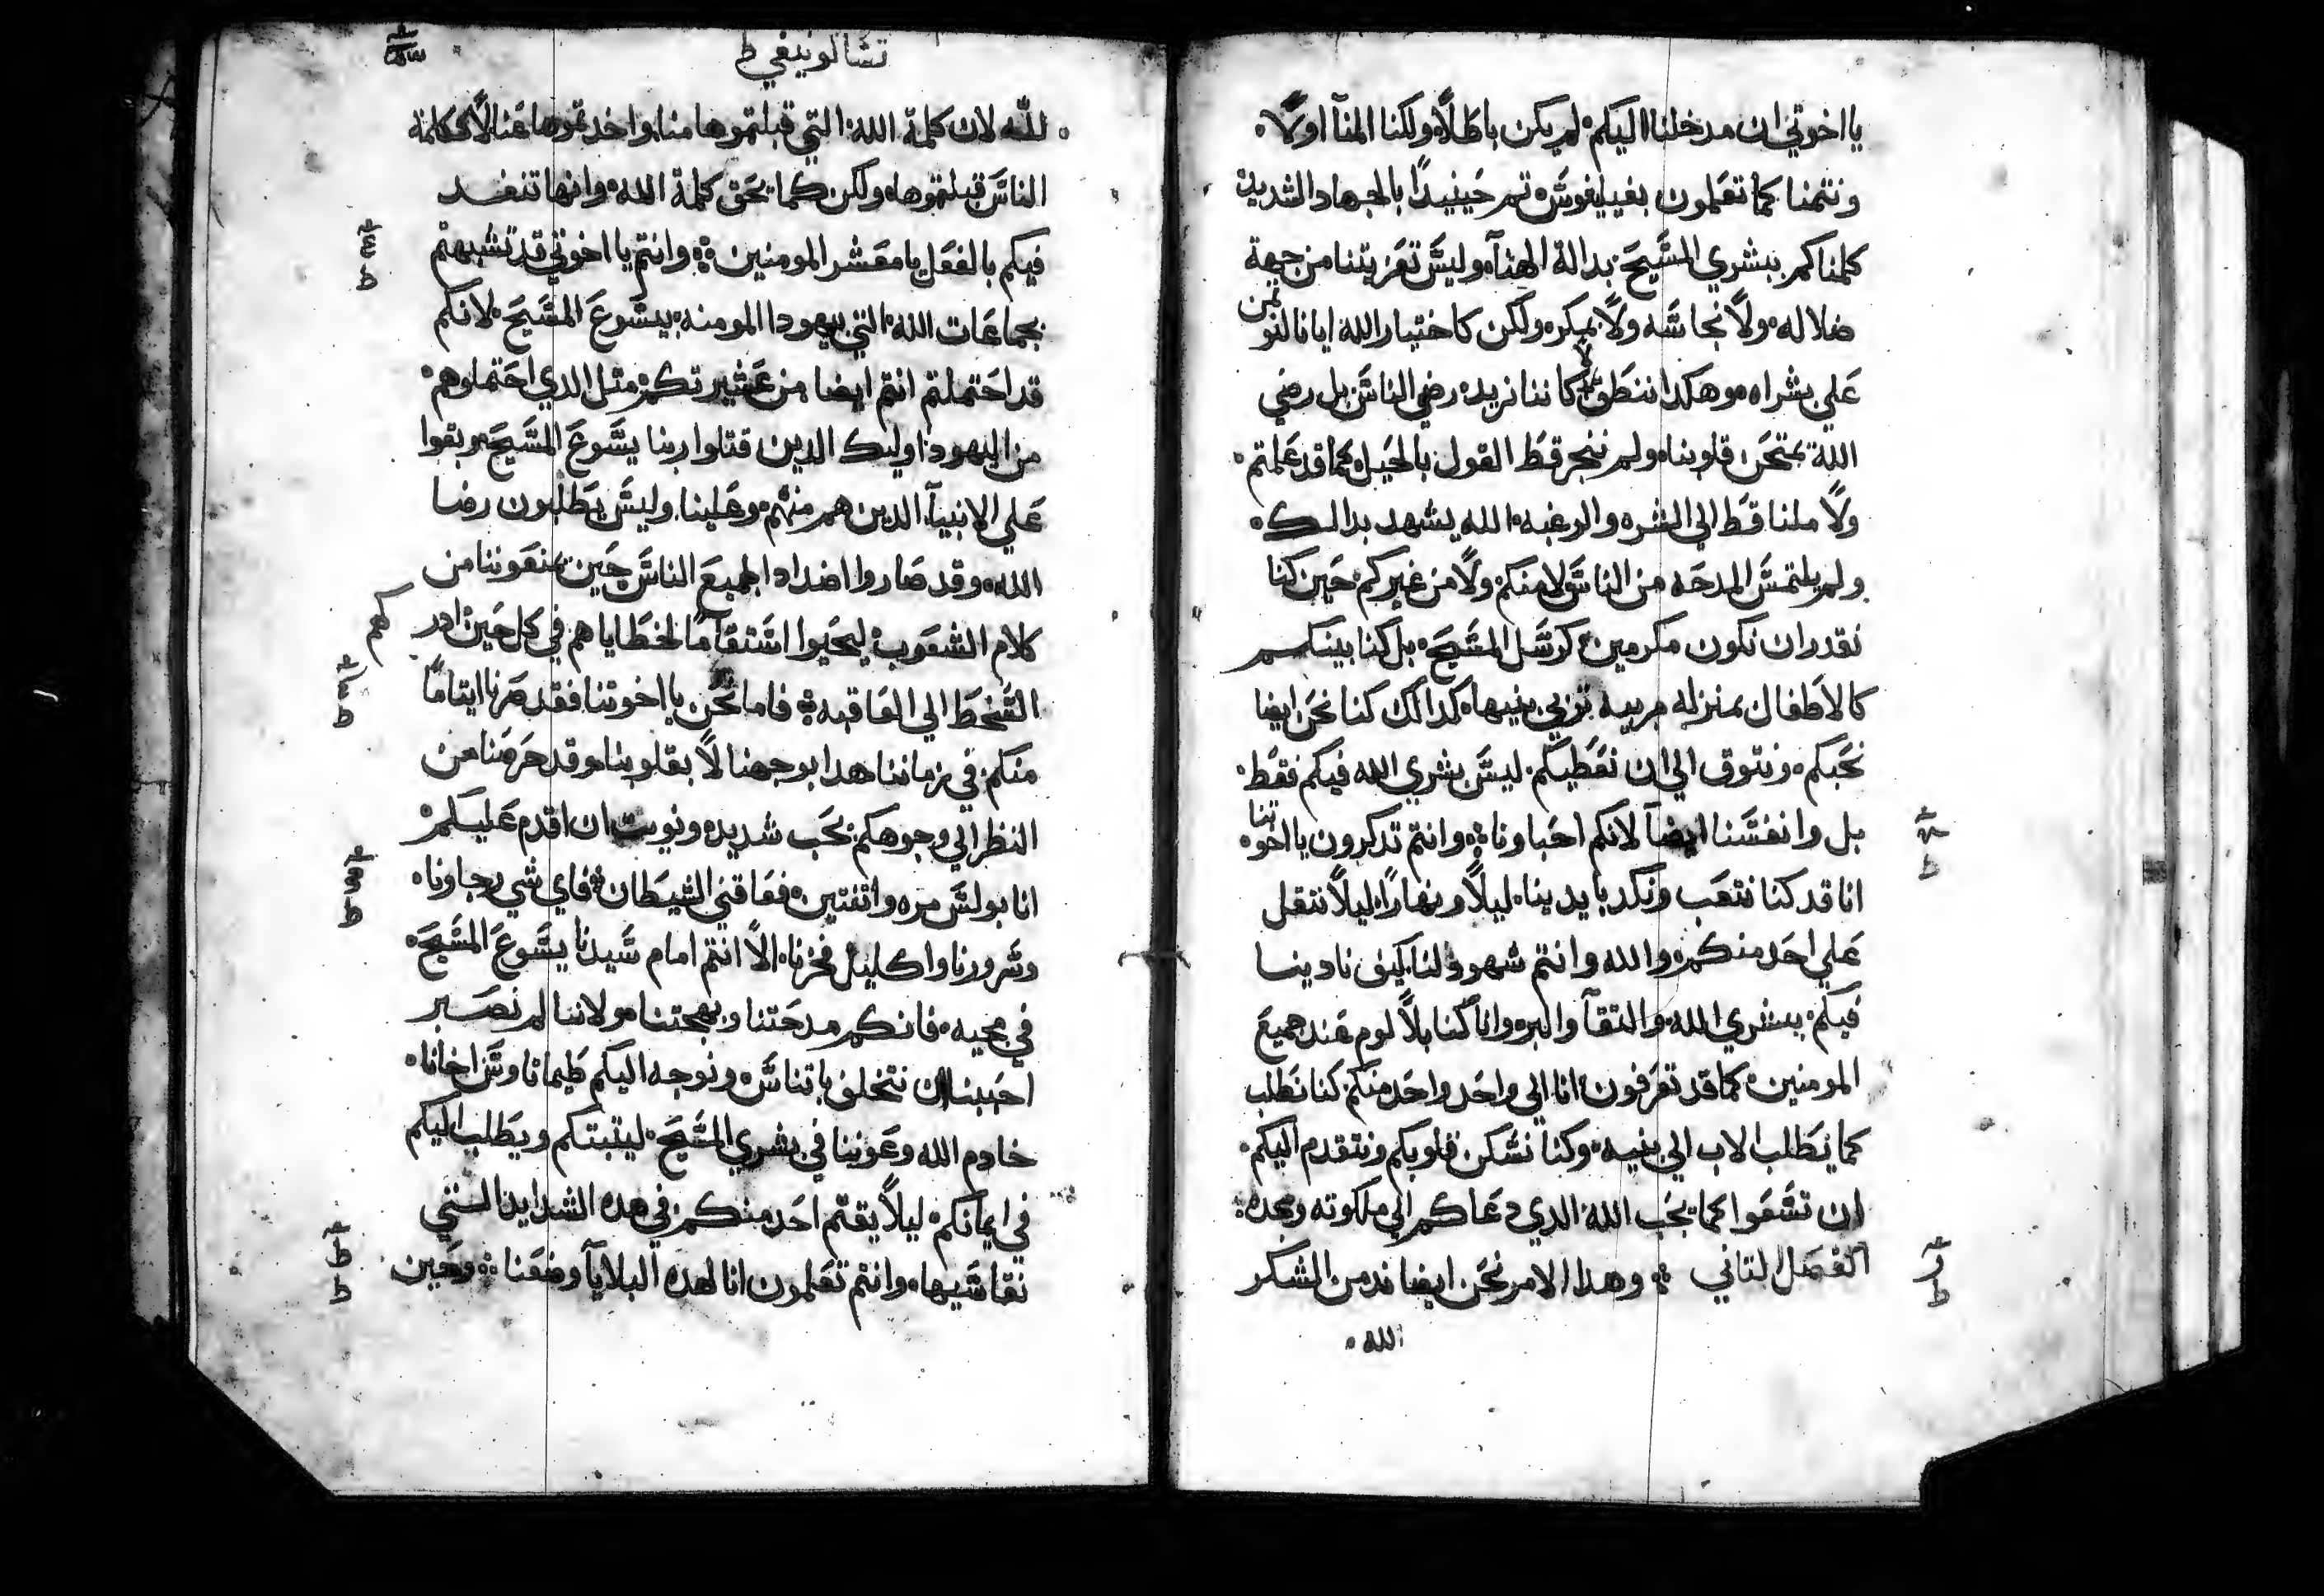 يا اخوتي ان مدخلنا اليكم لم يكن باطلاً ولكنا المنآ اولاً
ونتمنا كما تعلمون بفيليفوس تم حينيداً بالجهاد الشديد
كلمناكم ببشري المسيح بدالة الهنآ وليس تعزيتنا من جهة
ضلاله ولا نجاسه ولا بمكر ولكن كاختبار الله ايانا لنوتمن
علي بشراه وهكدا ننطق لا كاننا نريد رضي الناس بل رضي
الله يمتحن قلوبنا ولم ننجر قط القول بالحيل كما قد علمتم
ولا ملنا قط الي الشره والرغبه الله يشهد بدالك
ولم يلتمس المدحه من الناس لا منكم ولا من غيركم حين كنا
نقدر ان نكون مكرمين كرسل المسيح بل كنا بينكم
كالاطفال بمنزله مربيه تربي بنيها كدالك كنا نحن ايضا
نحبكم ونتوق الي ان نعطيكم ليس بشري الله فيكم فقط
بل وانفسنا ايضاً لانكم احباونا وانتم تدكرون يا اخوتنا
انا قد كنا نتعب ونكد بايدينا ليلاً ونهاراً ليلا نتقل
علي احد منكم والله وانتم شهود لنا كيف نادينا
فيكم ببشري الله والتقآ والبر وانا كنا بلا لوم عند جميع
المومنين كما قد تعرفون انا الي واحد واحد منكم كنا نطلب
كما يطلب الاب الي بنيه وكنا نسكن قلوبكم ونتقدم اليكم
ان تسعوا كما يحب الله الدي دعاكم الي ملكوته ومجده
الفصل التاني وهدا الامر نحن ايضا ندمن الشكر
الله
تسالونيقي ط
لله لان كلمة الله التي قبلتموها منا واخدتموها عنا لا ككلمة
الناس قبلتموها ولكن كما يحق كلمة الله وانها تنفد
فيكم بالفعل يا معشر المومنين وانتم يا اخوتي قد تشبهتم
بجماعات الله التي بيهودا المومنه بيسوع المسيح لانكم
قد احتملتم انتم ايضا من عشيرتكم متل الدي احتملوهم
من اليهود اوليك الدين قتلوا ربنا يسوع المسيح وبقوا
علي الانبيآ الدين هم منهم وعلينا وليس يطلبون رضا
الله وقد صاروا اضدادا لجميع الناس حين يمنعوننا من
كلام الشعوب ليحيوا استتماماً لخطاياهم في كل حين ادركهم
السخط الي العاقبه فاما نحن يا اخوتنا فقد صرنا ايتاماً
منكم في زماننا هدا بوجهنا لا بقلوبنا وقد حرصنا من
النظر الي وجوهكم بحب شديد ونويت ان اقدم عليكم
انا بولس مره واتنتين فعاقني الشيطان فاي شي رجاونا
وسرورنا واكليل فخرنا الا انتم امام سيدنا يسوع المسيح
في مجيه فانكم مدحتنا وبهجتنا ولاننا لم نصبر
احببنا ان نتخلف باتناس ونوجه اليكم طيماتاوس اخانا
خادم الله وعوننا في بشري المسيح ليتبتكم ويطلب اليكم
في ايمانكم ليلا يغتم احد منكم في هده الشدايد التي
نقاسيها وانتم تعلمون انا لهده البلايآ وضعنا وحين